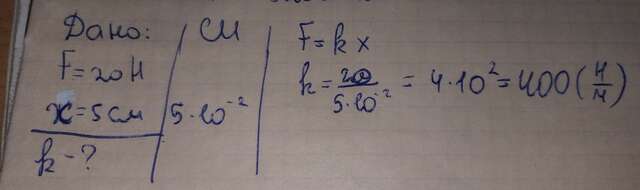 Дано:
F=20Н
x=5см
k-?
СИ
5·10⁻²
F=kx
k=20/5·10⁻² = 4·10²=400(Н/м)